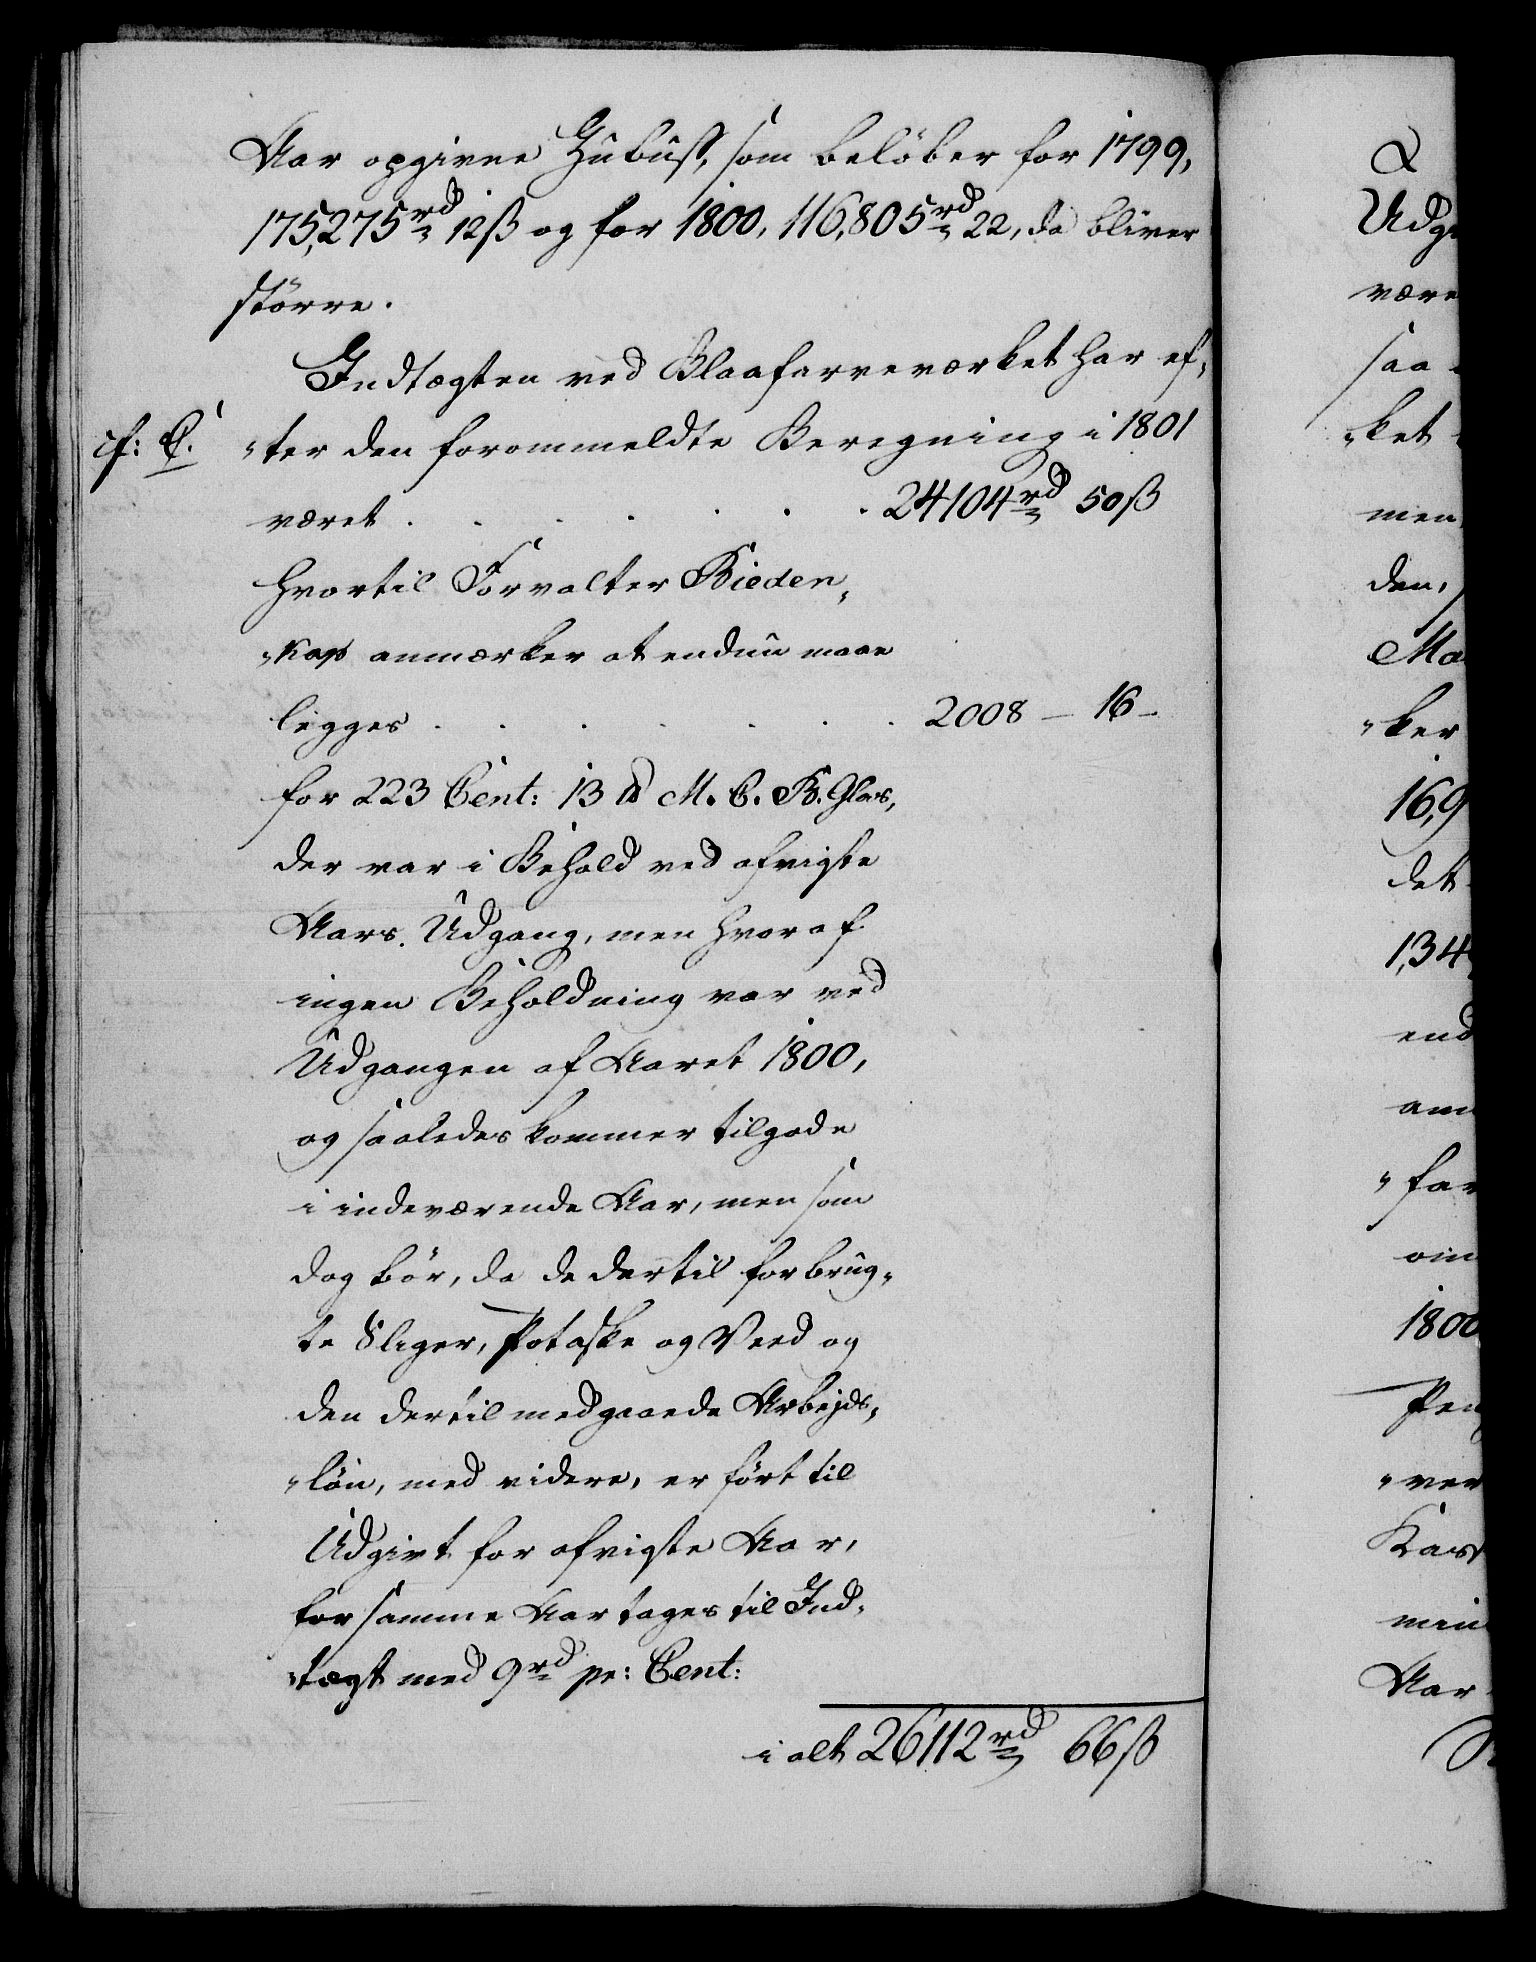 Aar opgivne Zubust, som beløber for 1799,
175,275 rd 12 ß og for 1800, 116,805 rd 22, da bliver
större.
Indtægten ved Blaafarveværket har ef-
cf: C. "ter den forommeldte Beregning i 1801
været . . . . . . . 24104 rd 50 ß
hvortil Forvalter Bieden-
"kap anmærker at endnu maae
ligges . . . . . . . 2008 – 16 –
for 223 Cent: 13 ℔ M. C. B. Glas,
der var i Behold ved afvigte
Aars Udgang, men hvoraf
ingen Beholdning var ved
Udgangen af Aaret 1800,
og saaledes kommer tilgode
i indeværende Aar, men som
dog bör, da de dertil forbrug-
te Sliger, Potaske og Veed og
den dertil medgaaede Arbejds-
"lön, med videre, er fört til
Udgivt for afvigte Aar,
for samme Aar tages til Ind-
"tægt med 9 rd pr: Cent:
i alt 26112 rd 66 ß
Udg
være
saa
"ket
men
den,
Ma
"ker
16,9
det
1,34
end
am
"far
om
1800
Pen
"ver
Kas
min
Aar